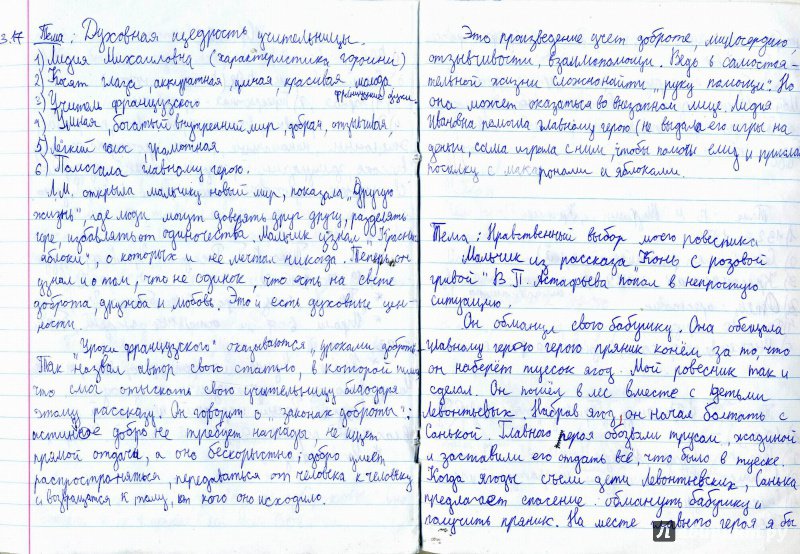 3.17
Тема: Духовная щедрость учительницы.
1) Лидия Михайловна (характеристика героини)
2) Косят глаза, аккуратная, умная, красивая, молода
3) Учитель французского
4) Умная, богатый внутренний мир, добрая, отзывчивая,
5) Лёгкий голос, грамотная
6) Помогала главному герою.
Л.М. открыла мальчику новый мир, показала "Другую
жизнь", где люди могут доверять друг другу, разделять
горе, избавлять от одиночества. Мальчик узнал "Красные
яблоки", о которых и не мечтал никогда. Теперь он
узнал и о том, что не одинок, что есть на свете
доброта, дружба и любовь. Это и есть духовные цен-
ности.
"Уроки французского" оказываются "уроками доброты".
Так назвал автор свою статью, в которой
что смог отыскать свою учительницу благодаря
этому рассказу. Он говорит о "законах доброты":
истинное добро не требует награды, не ищет
прямой отдачи, а оно бескорыстно; добро умеет
распространяться, передаваться от человека к человеку
и возвращатся к тому, от кого оно исходило.
Это произведение учет доброте, милосердию,
отзывчивости, взаимопомощи. Ведь в самостоя-
тельной жизни сложно найти "руку помощи". Но
она может оказаться во внезапном лице. Лидия
Ивановна помогла главному герою (не выдала его игры на
деньги, сама играла с ним, чтобы помочь ему и прислала
посылку с макаронами и яблоками.
Тема: Нравственный выбор моего ровестника
Мальчик из рассказа "Конь с розовой
гривой" В П. Астафьева попал в непростую
ситуацию.
Он обманул свою бабушку. Она обещала
главному герою герою пряник конём за то, что
он наберёт туесок ягод. Мой ровесник так и
сделал. Он пошёл в лес вместе с детьми
Левонтьевых. Набрав ягод, он начал болтать с
Санькой. Главного героя обозвали трусом, жадиной
и заставили его отдать всё, что было в туеске.
Когда ягоды съели дети Левонтьевских, Санька
предлагает спасение: обмануть бабушку и
получить пряник. На месте главного героя я бы